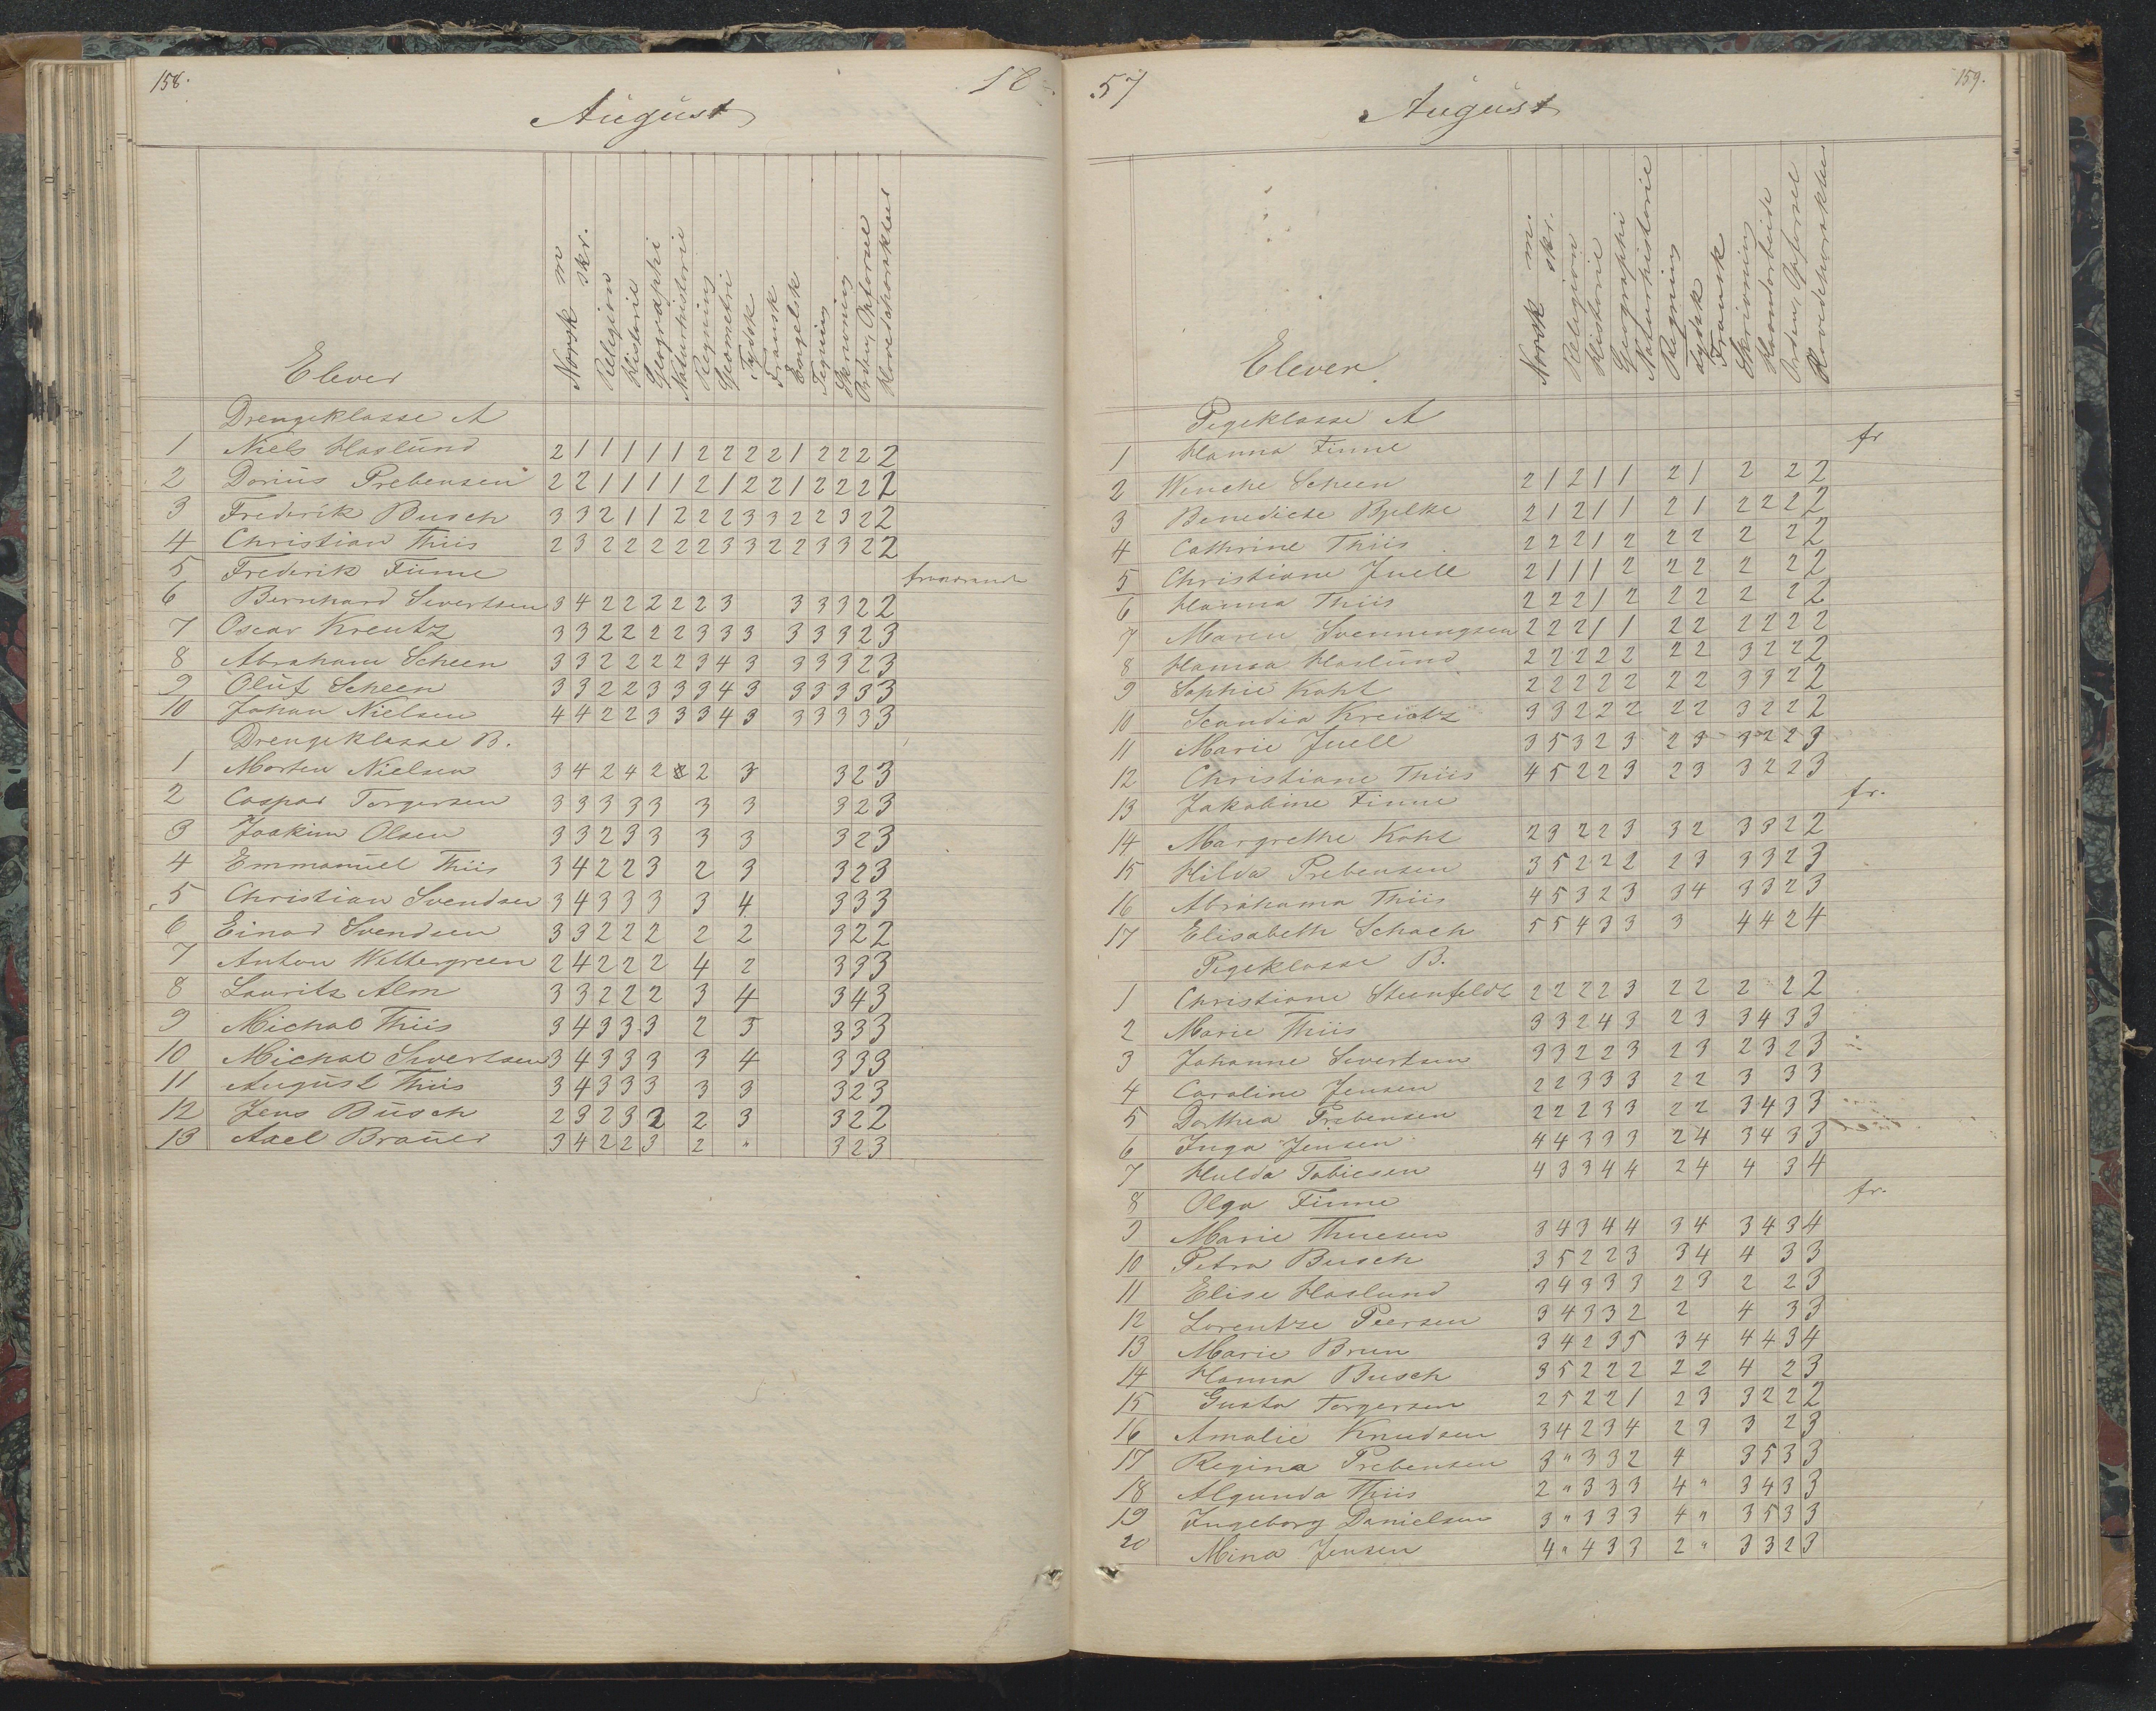 158.
18
August
Elever
Norsk m
skr.
Religion
Historie
Geographi
Naturhistorie
Regning
Geometri
Tydsk
Fransk
Engelsk
Tegning
Skrivning
Orden, Opførsel
Hovedcharakter
Drengeklasse A
1 Niels Haslund 2 1 1 1 1 1 2 2 2 2 1 2 2 2 2
2 Dorius Prebensen 2 2 1 1 1 1 2 1 2 2 1 2 2 2 2
3 Frederik Busch 3 3 2 1 1 2 2 2 3 3 2 2 3 2 2
4 Christian Thiis 2 3 2 2 2 2 2 2 3 3 2 2 3 3 2 2
5 Frederik Finne fraværende
6 Bernhard Sivertsen 3 4 2 2 2 2 2 3 3 3 3 2 2
7 Oscar Kreutz 3 3 2 2 2 2 2 3 3 3 3 3 3 3 2 3
8 Abraham Scheen 3 3 2 2 2 2 2 3 4 3 3 3 3 2 3
9 Oluf Scheen 3 3 2 2 3 3 3 4 3 3 3 3 3 3
10 Johan Nielsen 4 4 2 2 3 3 3 4 3 3 3 3 3 3
Drengeklasse B.
1 Morten Nielsen 3 4 2 4 2 2 3 3 2 3
2 Caspar Torgersen 3 3 3 3 3 3 3 3 2 3
3 Joakim Olsen 3 3 2 3 3 3 3 3 2 3
4 Emmanuel Thiis 3 4 2 2 3 2 3 3 2 3
5 Christian Svendsen 3 4 3 3 3 3 4 3 3 3
6 Einar Svendsen 3 3 2 2 2 2 2 3 2 2
7 Anton Wettergreen 2 4 2 2 2 4 2 3 3 3
8 Laurits Alm 3 3 2 2 2 3 4 3 4 3
9 Michal Thiis 3 4 3 3 3 2 3 3 3 3
10 Michal Sivertsen 3 4 3 3 3 3 4 3 3 3
11 August Thiis 3 4 3 3 3 3 3 3 2 3
12 Jens Busch 2 3 2 3 2 2 3 3 2 2
13 Axel Brauer 3 4 2 2 3 2 " 3 2 3
57
159.
August
Elever
Norsk m.
skr.
Religion
Historie
Geographi
Naturhistorie
Regning
Tydsk
Fransk
Skrivning
Haandarbeide
Orden, Opførsel
Hovedcharakter
Pigeklasse A
1 Hanna Finne fr
2 Wenche Scheen 2 1 2 1 1 2 1 2 2 2
3 Benedicte Bjelke 2 1 2 1 1 2 1 2 2 2 2
4 Cathrine Thiis 2 2 2 1 2 2 2 2 2 2
5 Christiane Juell 2 1 1 1 2 2 2 2 2 2
6 Hanna Thiis 2 2 2 1 2 2 2 2 2 2
7 Maren Svenningsen 2 2 2 1 1 2 2 2 2 2 2
8 Hansa Haslund 2 2 2 2 2 2 2 3 2 2 2
9 Sophie Koht 2 2 2 2 2 2 2 3 3 2 2
10 Scandia Kreutz 3 3 2 2 2 2 2 3 2 2 2
11 Marie Juell 3 5 3 2 3 2 3 3 2 2 3
12 Christiane Thiis 4 5 2 2 3 2 3 3 2 2 3
13 Jakobine Finne fr.
14 Margrethe Koht 2 3 2 2 3 3 2 3 3 2 2
15 Hilda Prebensen 3 5 2 2 2 2 3 3 3 2 3
16 Abrahama Thiis 4 5 3 2 3 3 4 3 3 2 3
17 Elisabeth Schach 5 5 4 3 3 3 4 4 2 4
Pigeklasse B.
1 Christiane Steenfeldt 2 2 2 2 3 2 2 2 2 2
2 Marie Thiis 3 3 2 4 3 2 3 3 4 3 3
3 Johanne Sivertsen 3 3 2 2 3 2 3 2 3 2 3
4 Caroline Jensen 2 2 3 3 3 2 2 3 3 3
5 Dorthea Prebensen 2 2 2 3 3 2 2 3 4 3 3
6 Inga Jensen 4 4 3 3 3 2 4 3 4 3 3
7 Hulda Tobiesen 4 3 3 4 4 2 4 4 3 4
8 Olga Finne fr.
9 Marie Thuesen 3 4 3 4 4 3 4 3 4 3 4
10 Petra Busch 3 5 2 2 3 3 4 4 3 3
11 Elise Haslund 3 4 3 3 3 2 3 2 2 3
12 Lorentze Peersen 3 4 3 3 2 2 4 3 3
13 Marie Brun 3 4 2 3 5 3 4 4 4 3 4
14 Hanna Busch 3 5 2 2 2 2 2 4 2 3
15 Gusta Torgersen 2 5 2 2 1 2 3 3 2 2 2
16 Amalie Knudsen 3 4 2 3 4 2 3 3 2 3
17 Regina Prebensen 3 " 3 3 2 4 3 5 3 3
18 Algunda Thiis 2 " 3 3 3 4 " 3 4 3 3
19 Ingeborg Danielsen 3 " 3 3 3 4 " 3 5 3 3
20 Mina Jensen 4 " 4 3 3 2 " 3 3 2 3